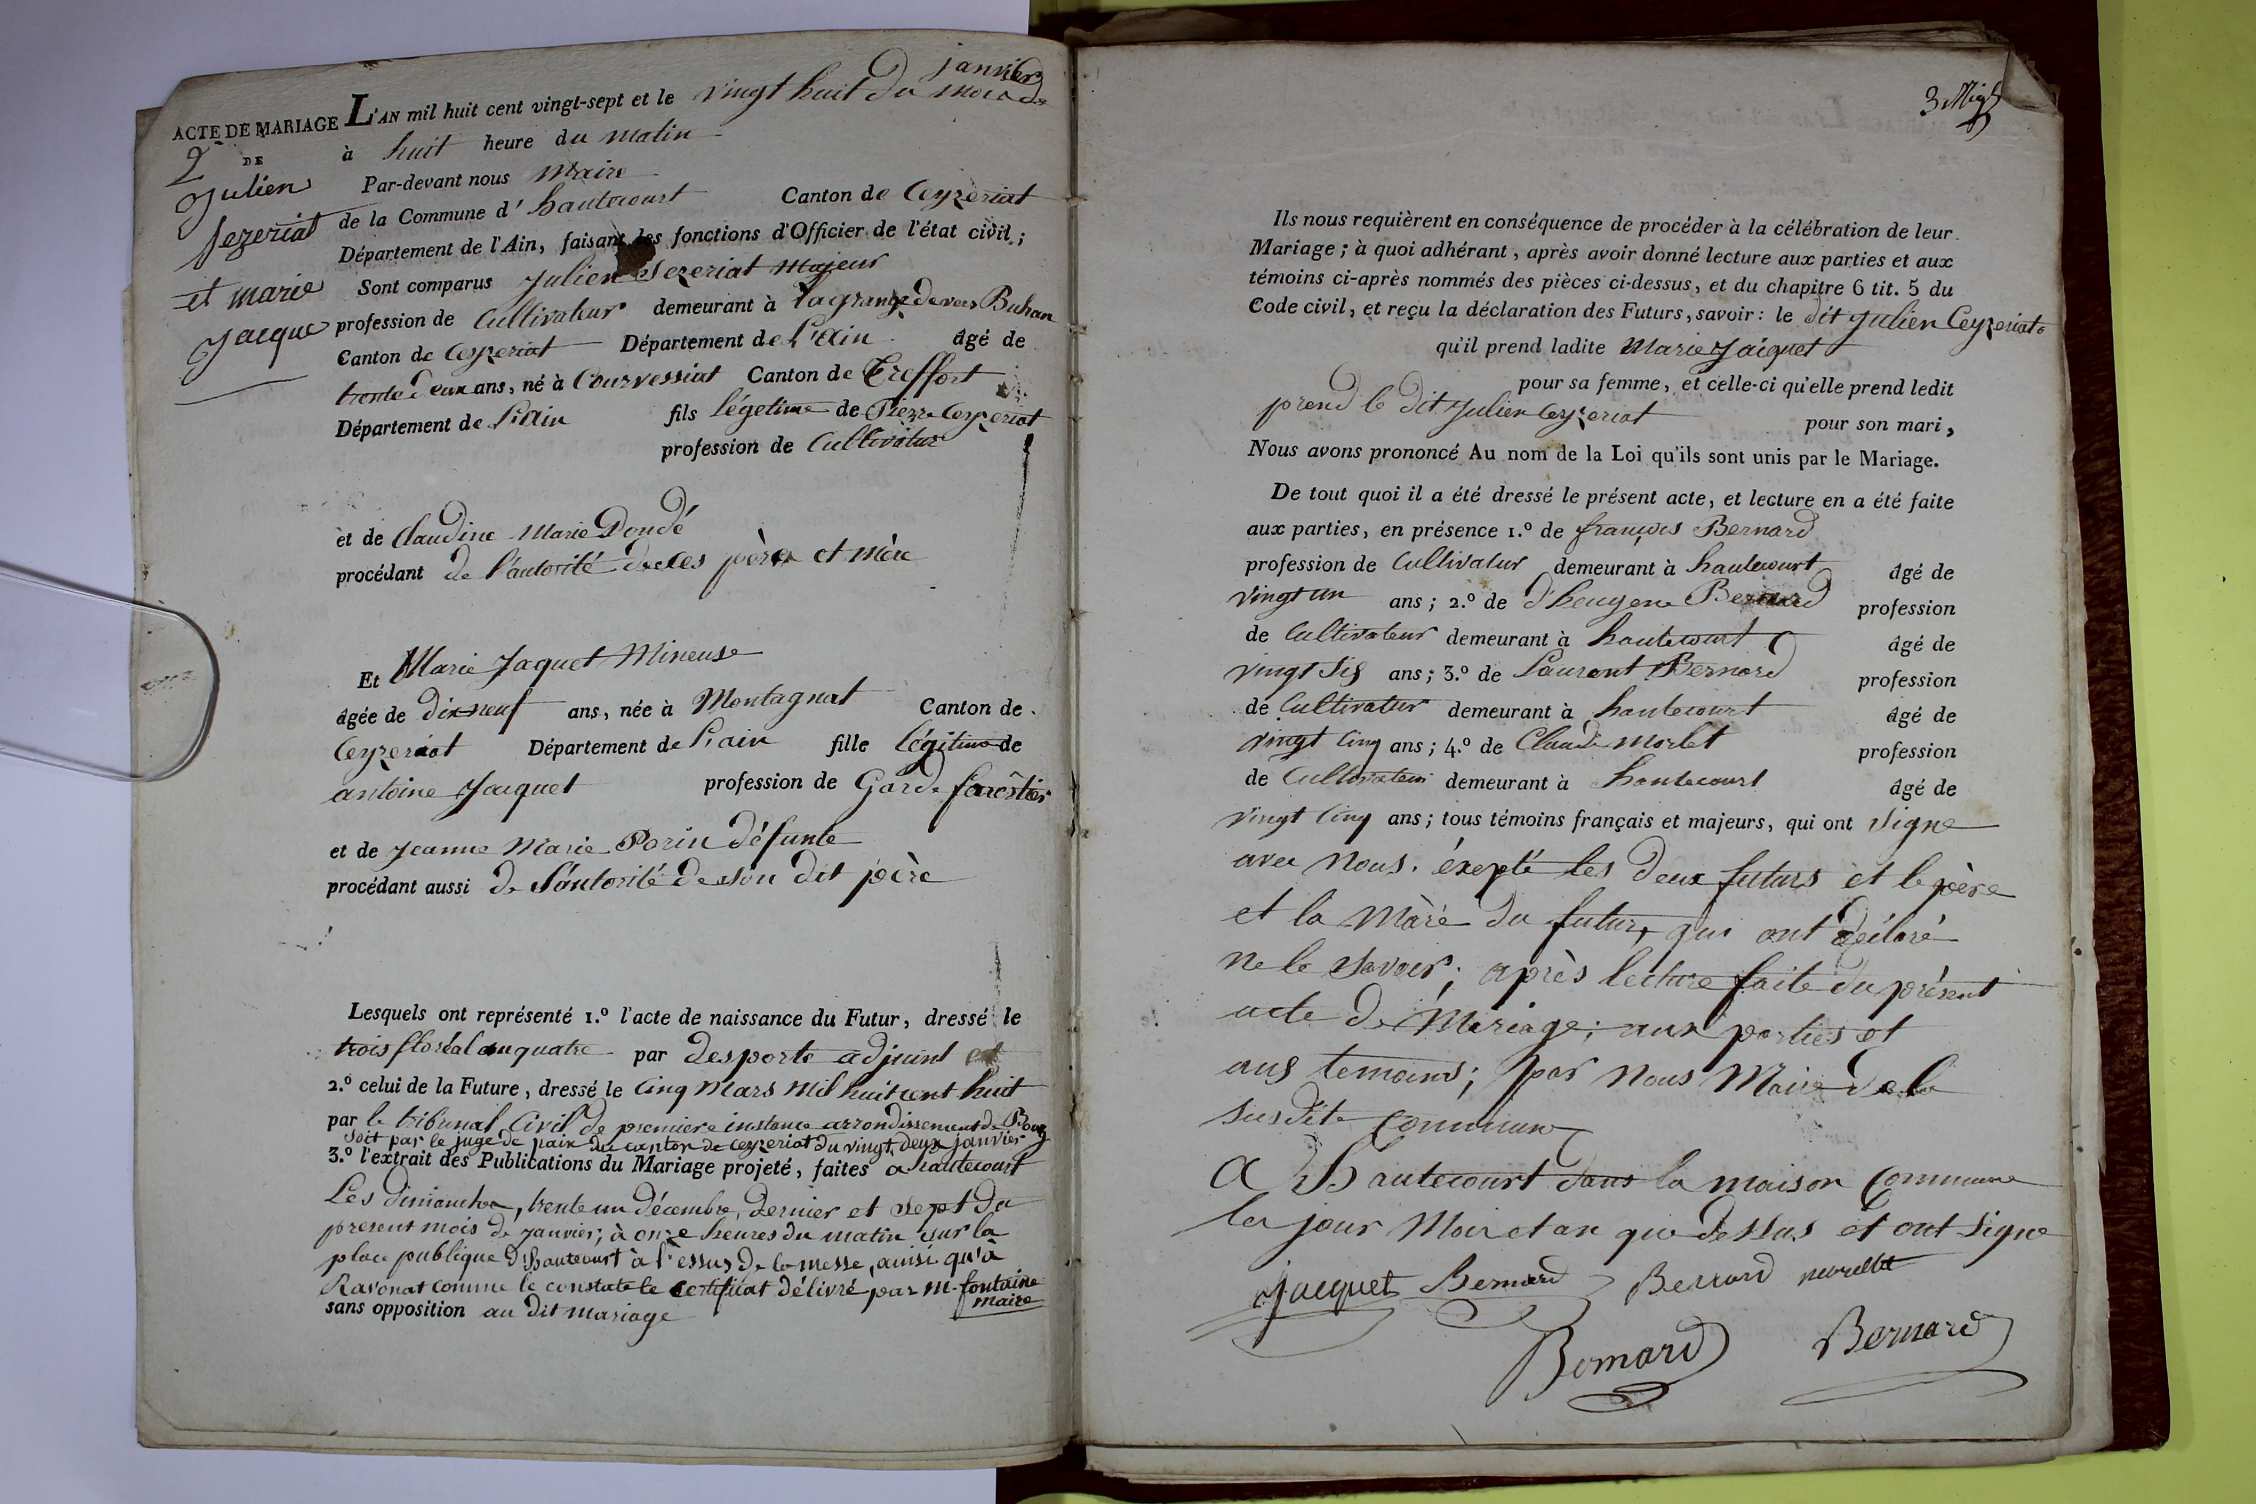 janvier
ACTE DE MARIAGE L'AN mil huit cent vingt-sept et le vingt huit du mois de
2e DE à huit heure du matin
Julien Par-devant nous maire
Sezeriat de la Commune d' hautecourt Canton de Ceyzeriat
Département de l'Ain, faisant les fonctions d'Officier de l'état civil;
et marie Sont comparus Julien Sezeriat Majeur
Jacque profession de Cultivateur demeurant à la grange de vers Buhan
Canton de Ceyzeriat Département de L'Ain âgé de
trente deux ans, né à Courvessiat Canton de Treffort
Département de L'ain fils légetime de Pierre Ceyzeriat
profession de Cultivatur
et de Claudine Marie Dondé
procédant de l'autorité de ces père et mère
Et Marie Jaquet Mineuse
âgée de dix neuf ans, née à Montagnat Canton de
Ceyzeriat Département de L'ain fille légitime de
antoine Jacquet profession de Garde forestier
et de Jeanne Marie Porin défunte
procédant aussi de l'autorité de son dit père
Lesquels ont représenté 1.º l'acte de naissance du Futur, dressé le
trois floréal an quatre par desporte adjoint et
2.º celui de la Future, dressé le Cinq Mars mil huit cent huit
par le tribunal Civil de premiere instance arrondissement de Bourg
soit par le juge de paix du canton de Ceyzeriat du vingt deux janvier
3.º l'extrait des Publications du Mariage projeté, faites a hautecourt
Les dimanches, trente un décembre dernier et sept du
present mois de janvier; à onze heures du matin sur la
place publique d'hautecourt à l'essus de la messe, ainsi qu'à
Ravonat comme le constate le certificat délivré par M. fontaine
maire
sans opposition au dit mariage
3
Ils nous requièrent en conséquence de procéder à la célébration de leur
Mariage; à quoi adhérant, après avoir donné lecture aux parties et aux
témoins ci-après nommés des pièces ci-dessus, et du chapitre 6 tit. 5 du
Code civil, et reçu la déclaration des Futurs, savoir: le dit Julien Ceyzeriat
qu'il prend ladite Marie Jacquet
pour sa femme, et celle-ci qu'elle prend ledit
prend le dit Julien Ceyzeriat pour son mari,
Nous avons prononcé Au nom de la Loi qu'ils sont unis par le Mariage.
De tout quoi il a été dressé le présent acte, et lecture en a été faite
aux parties, en présence 1.º de françois Bernard
profession de Cultivatur demeurant à hautecourt âgé de
vingt un ans; 2.º de d'heugene Bernard profession
de Cultivateur demeurant à hautecourt âgé de
vingt sis ans; 3.º de Laurent Bernard profession
de Cultivatur demeurant à hautecourt âgé de
vingt Cinq ans; 4.º de Claude Morlet profession
de Cultivateur demeurant à hautecourt âgé de
vingt Cinq ans; tous témoins français et majeurs, qui ont signe
avec nous. éxepté les deux futurs et le père
et la Mère du futur, qui ont déclaré
ne le savoir; après lecture faite du présent
acte de Mariage; aux parties et
aus temoins; par nous Maire de la
susdite commune
A hautecourt dans la maison Commune
les jour Mois et an que dessus et ont signe
Jacquet Bernard Bernard
Bernard Bernard